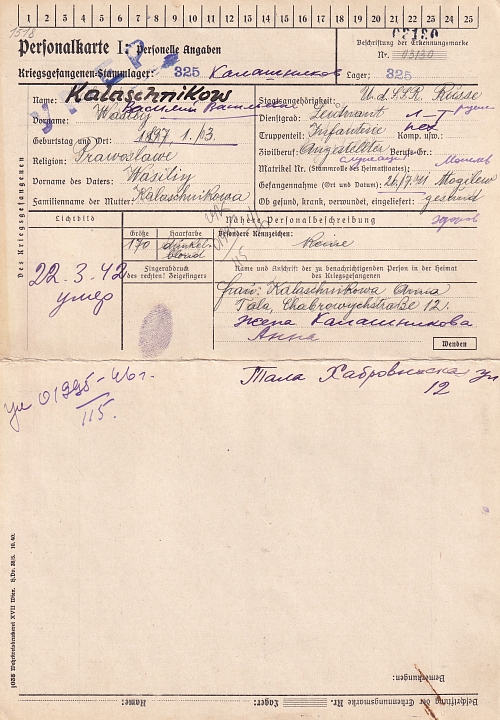 1 2 3 4 5 6 7 8 9 10 11 12 13 14 15 16 17 18 19 20 21 22 23 24 25
1518
03190
Personalkarte I: Personelle Angaben
Beschriftung der Erkennungsmarke
Nr. 03190
Kriegsgefangenen-Stammlager: 325 Калашников
Lager: 325
УМЕР
Des Kriegsgefangenen
Name: Kalaschnikow
Василий Васильевич
Vorname: Wasiliy
Geburtstag und Ort: 1897, 1./13.
Religion: Prawoslawe
Vorname des Vaters: Wasiliy
Familienname der Mutter: Kalaschnikowa
Staatsangehörigkeit: U.d.S.S.R. Russe
Dienstgrad: Leutnant
Truppenteil: Infanterie Komp. usw.: пех
Zivilberuf: Angestellter Berufs-Gr.:
служащий
Matrikel Nr. (Stammrolle des Heimatstaates):
Могилев
Gefangennahme (Ort und Datum): 26/7.41 Mogilew
Ob gesund, krank, verwundet, eingeliefert: gesund
здоров
Lichtbild
Nähere Personalbeschreibung
Größe
Haarfarbe
Besondere Kennzeichen:
170
dunkelblond
Keine
22.3.42
умер
Fingerabdruck
des rechten! Zeigefingers
Name und Anschrift der zu benachrichtigenden Person in der Heimat
des Kriegsgefangenen
Frau: Kalaschnikowa Anna
Tala, Chabrowychstraße 12.
жена Калашникова
Анна
Wenden
Тала Хабровысска ул
12
ум 01995-46г.
115.
1035 Wehrkreisdruckerei XVII Wien.
Bemerkungen:
Beschriftung der Erkennungsmarke Nr.
Lager:
Name: